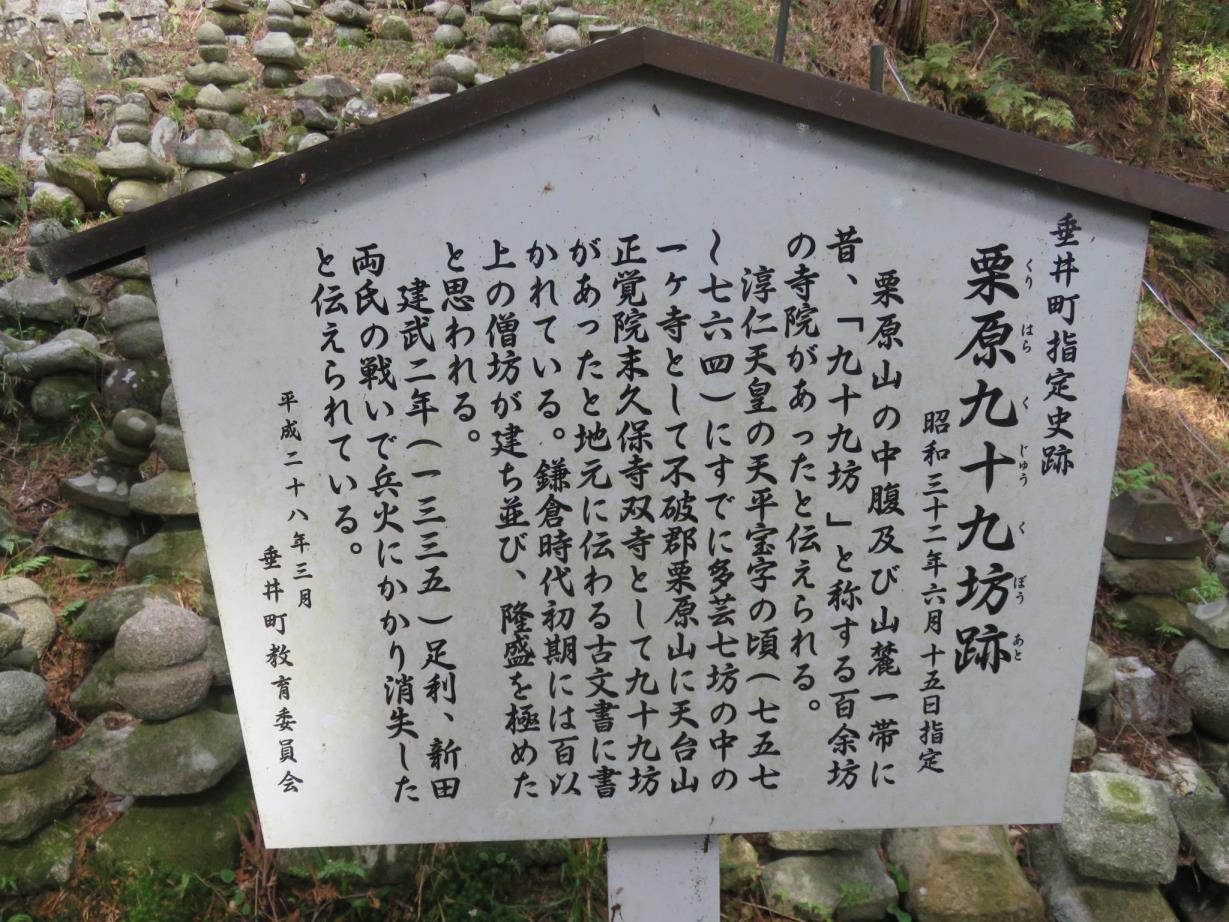 垂井町指定史跡
栗原九十九坊跡
くりはらくじゅうくぼうあと
昭和三十二年六月十五日指定
栗原山の中腹及び山麓一帯に
昔、「九十九坊」と称する百余坊
の寺院があったと伝えられる。
淳仁天皇の天平宝字の頃(七五七
~七六四)にすでに多芸七坊の中の
一ヶ寺として不破郡栗原山に天台山
正覚院末久保寺双寺として九十九坊
があったと地元に伝わる古文書に書
かれている。鎌倉時代初期には百以
上の僧坊が建ち並び、隆盛を極めた
と思われる。
建武二年(一三三五)足利、新田
両氏の戦いで兵火にかかり消失した
と伝えられている。
平成二十八年三月
垂井町教育委員会